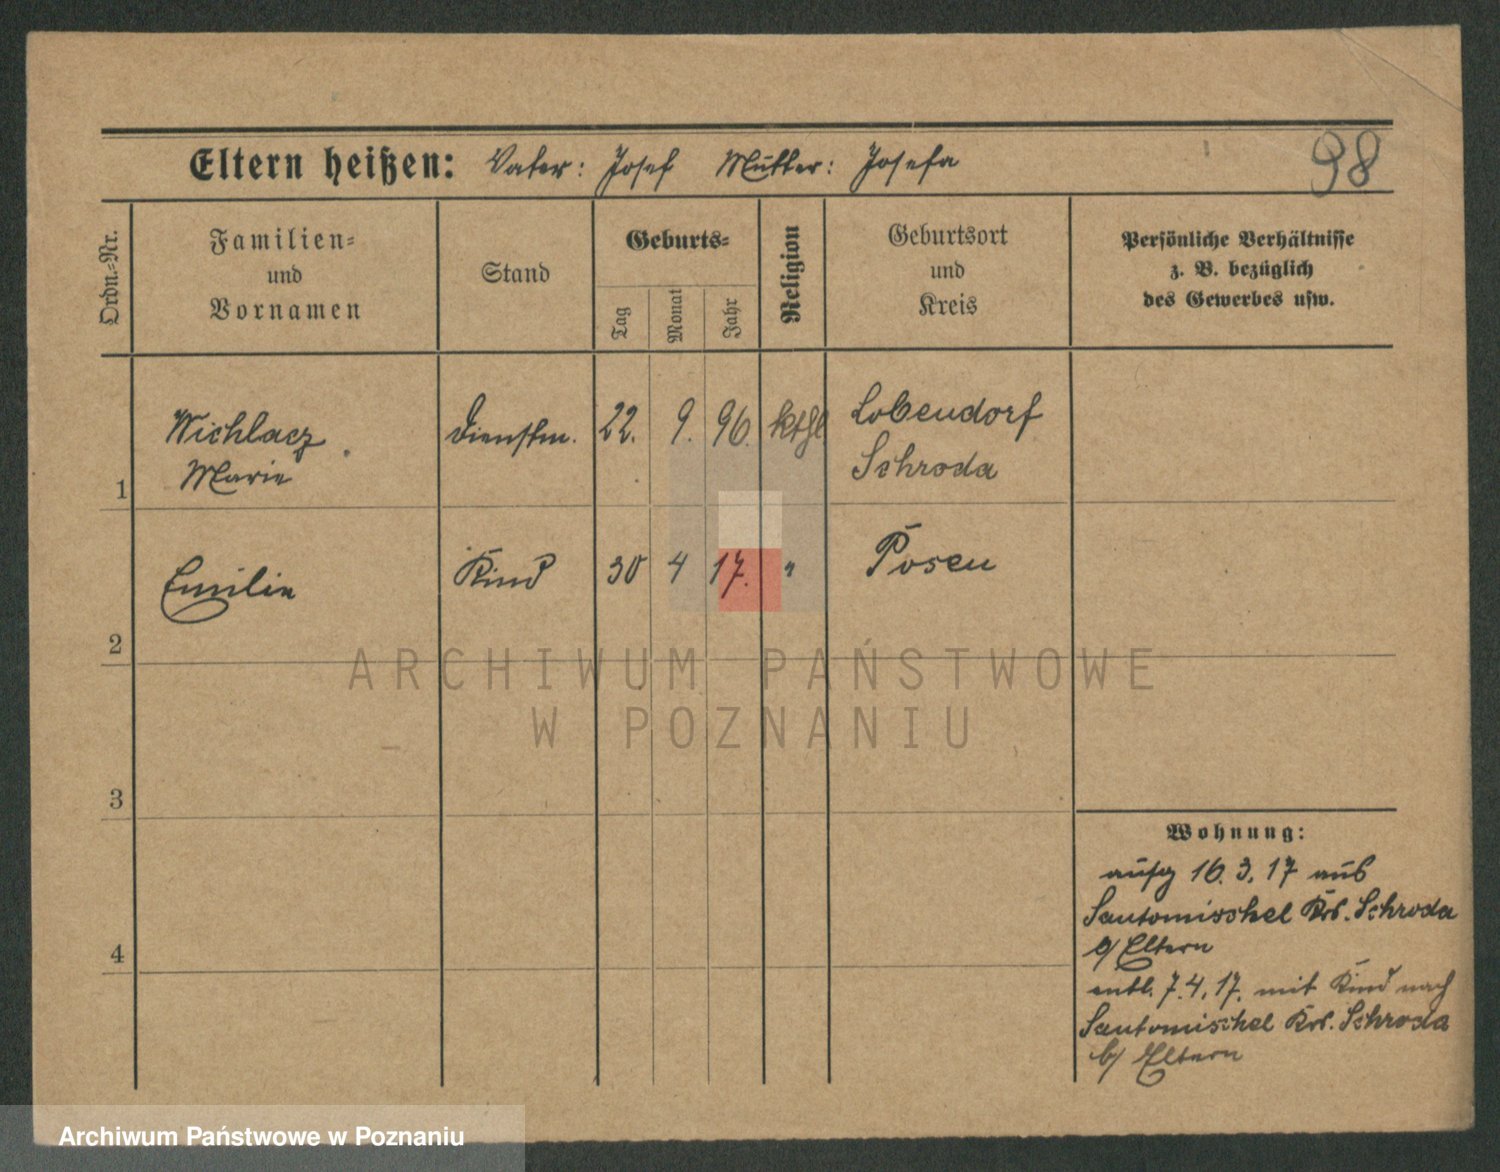 Eltern heißen: Vater: Josef Mutter: Josefa
98
Ordn.-Nr.
Familien-
und
Vornamen
Stand
Geburts-
Tag
Monat
Jahr
Religion
Geburtsort
und
Kreis
Persönliche Verhältnisse
z. B. bezüglich
des Gewerbes usw.
1
Wichlacz
Marie
Dienstm.
22. 9. 96.
kthl
Lobendorf
Schroda
2
Emilie
Kind
30 4 17.
"
Posen
ARCHIWUM PAŃSTWOWE
W POZNANIU
3
4
Wohnung:
aufg 16. 3. 17 aus
Santomischel Krs. Schroda
b/ Eltern
entl. 7. 4. 17. mit Kind nach
Santomischel Krs. Schroda
b/ Eltern
Archiwum Państwowe w Poznaniu